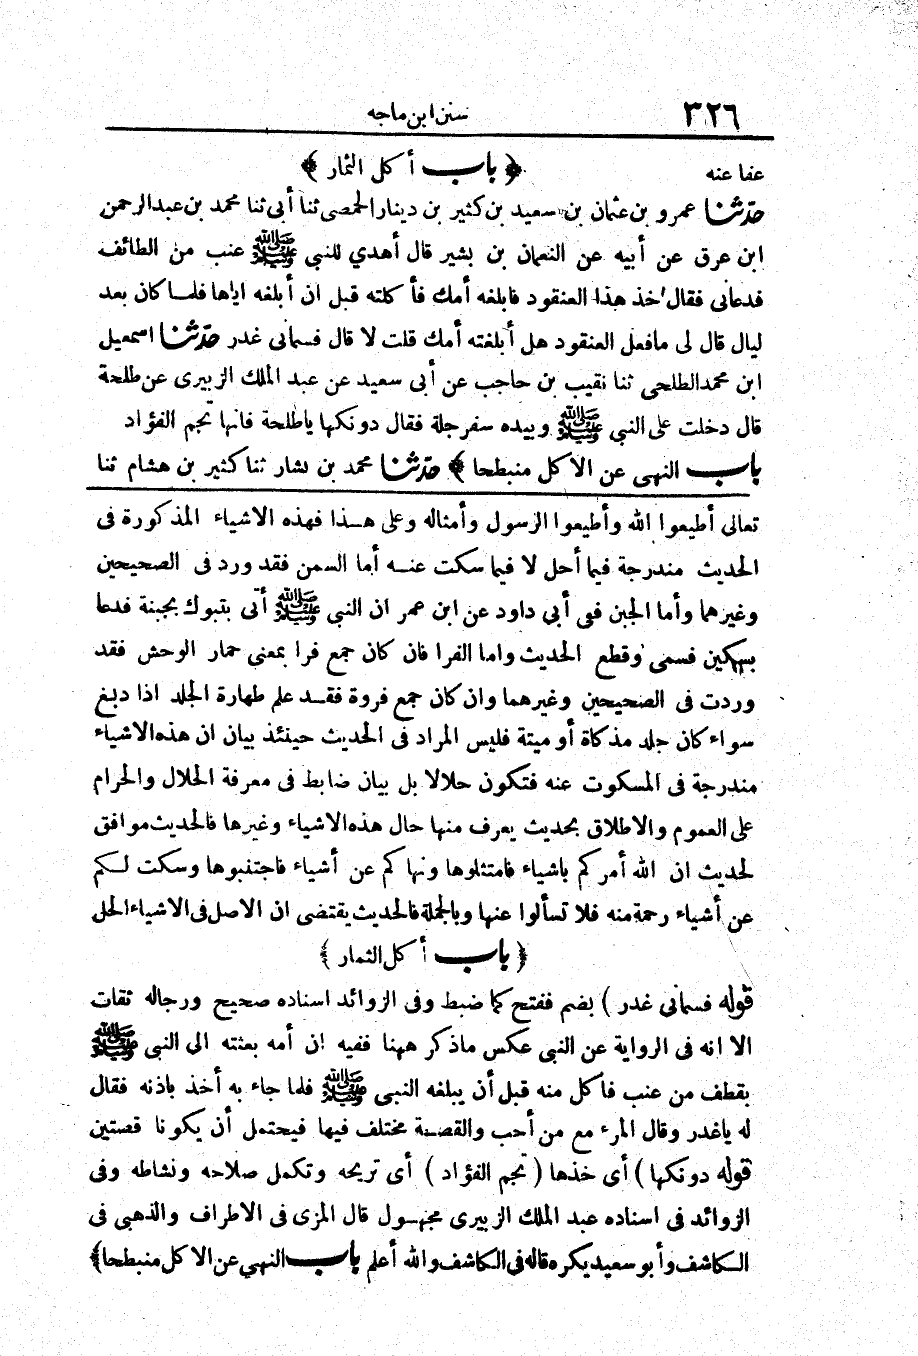 ٣٢٦ سنن ابن ماجه
عفا عنه ﴿ باب أكل الثمار ﴾
حدّثنا عمرو بن عثمان بن سعيد بن كثير بن دينار الحمصى ثنا أبى ثنا محمد بن عبد الرحمن
ابن عرق عن أبيه عن النعمان بن بشير قال أهدي للنبي ﷺ عنب من الطائف
فدعانى فقال خذ هذا العنقود فابلغه أمك فأكلته قبل ان أبلغه اياها فلما كان بعد
ليال قال لى مافعل العنقود هل أبلغته أمك قلت لا قال فسمانى غدر حدّثنا اسمعيل
ابن محمد الطلحى ثنا نقيب بن حاجب عن أبى سعيد عن عبد الملك الزبيرى عن طلحة
قال دخلت على النبي ﷺ وبيده سفرجلة فقال دونكها ياطلحة فانها تجم الفؤاد
باب النهى عن الاكل منبطحا ﴾ حدّثنا محمد بن بشار ثنا كثير بن هشام ثنا
تعالى أطيعوا الله وأطيعوا الرسول وأمثاله وعلى هذا فهذه الاشياء المذكورة فى
الحديث مندرجة فيما أحل لا فيما سكت عنه أما السمن فقد ورد فى الصحيحين
وغيرهما وأما الجبن فى أبى داود عن ابن عمر ان النبي ﷺ أتى بتبوك بجبنة فدعا
بسكين فسمى وقطع الحديث واما الفرا فان كان جمع فرا بمعنى حمار الوحش فقد
وردت فى الصحيحين وغيرهما وان كان جمع فروة فقد علم طهارة الجلد اذا دبغ
سواء كان جلد مذكاة أو ميتة فليس المراد فى الحديث حينئذ بيان ان هذه الاشياء
مندرجة فى المسكوت عنه فتكون حلالا بل بيان ضابط فى معرفة الحلال والحرام
على العموم والاطلاق بحديث يعرف منها حال هذه الاشياء وغيرها فالحديث موافق
لحديث ان الله أمركم باشياء فامتثلوها ونهاكم عن أشياء فاجتنبوها وسكت لكم
عن أشياء رحمة منه فلا تسألوا عنها وبالجملة فالحديث يقتضى ان الاصل فى الاشياء الحل
﴿ باب أكل الثمار ﴾
قوله فسمانى غدر ) بضم ففتح كما ضبط وفى الزوائد اسناده صحيح ورجاله ثقات
الا انه فى الرواية عن النبى عكس ماذكر ههنا ففيه ان أمه بعثته الى النبى ﷺ
بقطف من عنب فأكل منه قبل أن يبلغه النبى ﷺ فلما جاء به أخذ باذنه فقال
له ياغدر وقال المرء مع من أحب والقصة مختلف فيها فيحتمل أن يكونا قصتين
قوله دونكها ) أى خذها ( تجم الفؤاد ) أى تريحه وتكمل صلاحه ونشاطه وفى
الزوائد فى اسناده عبد الملك الزبيرى مجهول قال المزى فى الاطراف والذهبى فى
الكاشف وأبو سعيد يكره قاله فى الكاشف والله أعلم باب النهي عن الاكل منبطحا ﴾